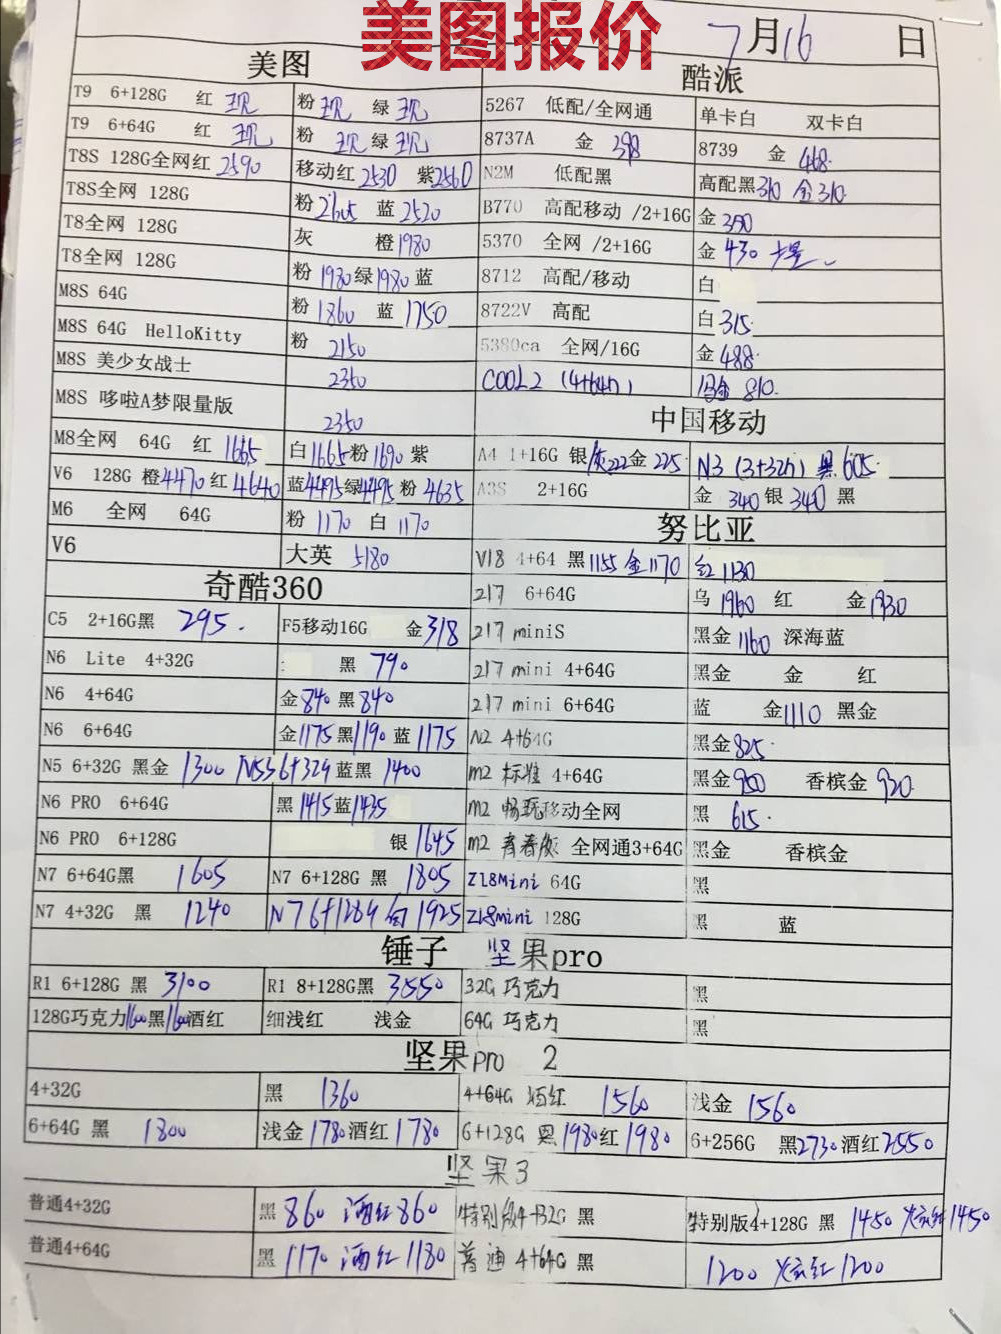 美图报价
7月16日
美图 酷派
T9 6+128G 红 现 粉 现 绿 现 5267 低配/全网通 单卡白 双卡白
T9 6+64G 红 现 粉 现 绿 现 8737A 金 398 8739 金 468
T8S 128G全网红 2590 移动红 2530 紫2560 N2M 低配黑 高配黑310 金310
T8S全网 128G 粉 蓝 2520 B770 高配移动 /2+16G 金 350
T8全网 128G 灰 橙1980 5370 全网 /2+16G 金 430
T8全网 128G 粉 1980 绿1980 蓝 8712 高配/移动 白
M8S 64G 粉 1860 蓝 1750 8722V 高配 白 315
M8S 64G HelloKitty 粉 2150 5380ca 全网/16G 金 488
M8S 美少女战士 2350 COOL2 (4+64n) 金 810
M8S 哆啦A梦限量版 2350 中国移动
M8全网 64G 红 1665 白1665粉1690 紫 A4 1+16G 银/灰222金 225 N3 (3+32n) 黑 605
V6 128G 橙4470红4640 蓝4495绿4495 粉 4635 A3S 2+16G 金 340银 340 黑
M6 全网 64G 粉 1170 白 1170 努比亚
V6 大英 5180 V18 4+64 黑1155 金1170 红1130
奇酷360 217 6+64G 乌 1960 红 金1930
C5 2+16G黑 295. F5移动16G 金318 217 miniS 黑金 1160 深海蓝
N6 Lite 4+32G 黑 790 217 mini 4+64G 黑金 金 红
N6 4+64G 金840 黑840 217 mini 6+64G 蓝 金1110 黑金
N6 6+64G 金1175黑1190 蓝 1175 N2 4+64G 黑金825
N5 6+32G 黑金 1300 N5S 6+32G 蓝黑 1400 m2 标准 4+64G 黑金950 香槟金 920
N6 PRO 6+64G 黑1415蓝1435 m2 畅玩移动全网 黑 615
N6 PRO 6+128G 银 1645 m2 青春版 全网通3+64G 黑金 香槟金
N7 6+64G黑 1605 N7 6+128G 黑 1805 Z18Mini 64G 黑
N7 4+32G 黑 1240 N7 6+128G 白 1925 Z18mini 128G 黑 蓝
锤子 坚果pro
R1 6+128G 黑 3100 R1 8+128G黑 3550 32G 巧克力 黑
128G巧克力1600黑1600酒红 细浅红 浅金 64G 巧克力 黑
坚果pro 2
4+32G 黑 1360 4+64G 酒红 1560 浅金 1560
6+64G 黑 1800 浅金1780酒红1780 6+128G 黑1980红1980 6+256G 黑2730酒红2550
坚果3
普通4+32G 黑 860 酒红860 特别版4+32G 黑 特别版4+128G 黑 1450 炫红1450
普通4+64G 黑 1170 酒红 1180 普通 4+64G 黑 1200 炫红1200